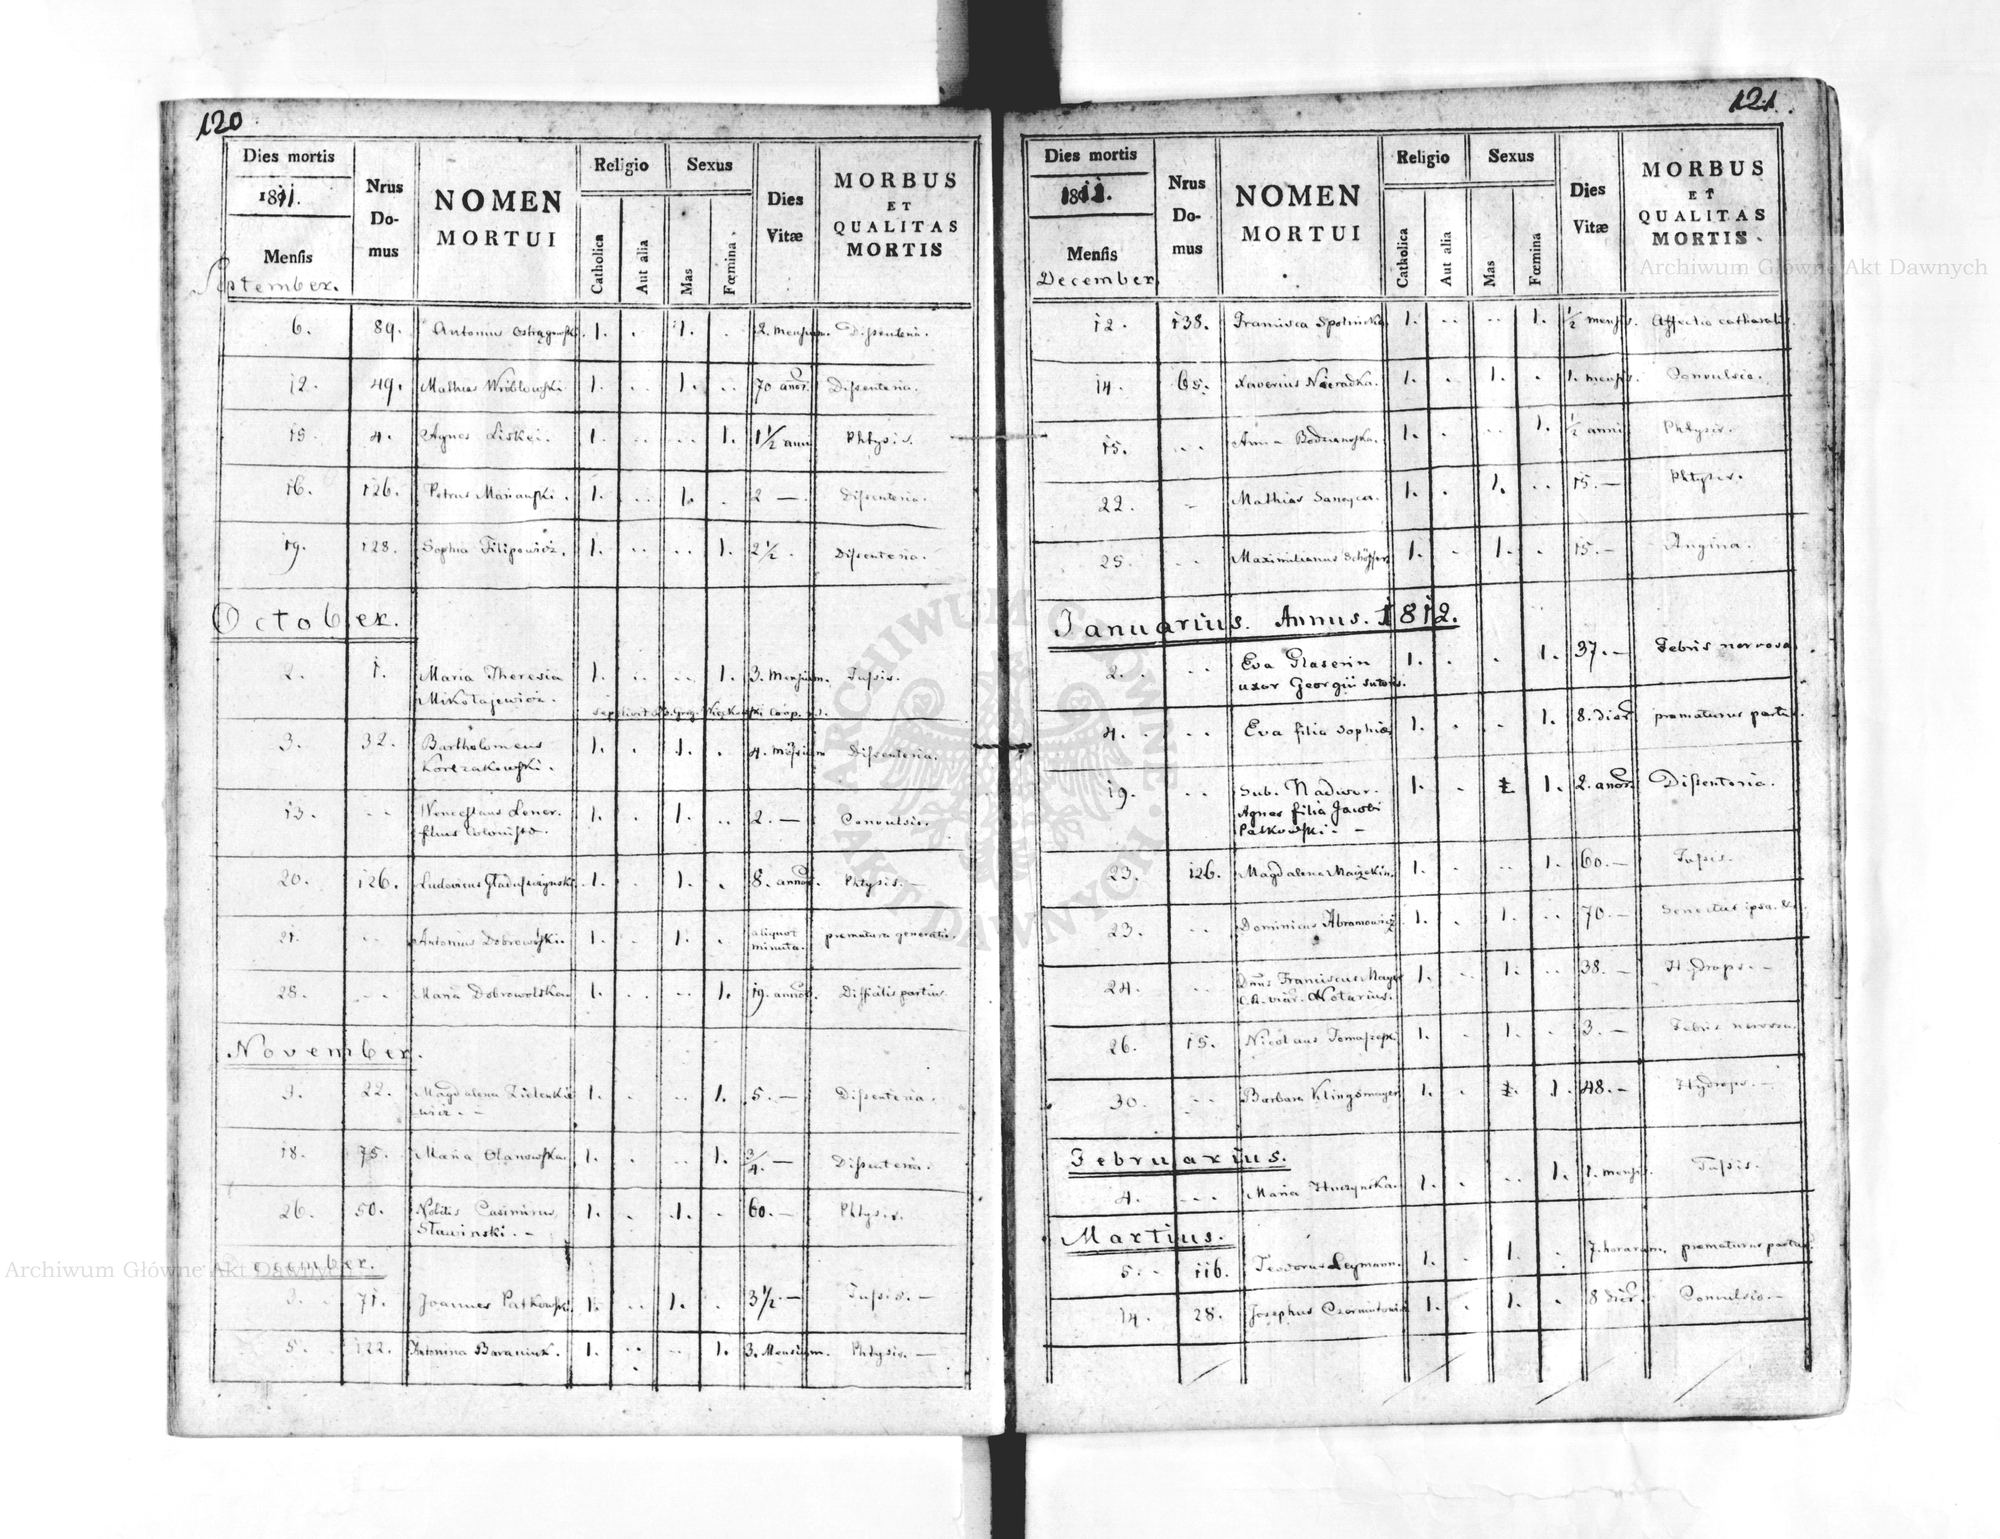 120
Dies mortis
1811.
Mensis
September.
Nrus Domus
NOMEN MORTUI
Religio
Catholica
Aut alia
Sexus
Mas
Fœmina
Dies Vitæ
MORBUS ET QUALITAS MORTIS
6. 89. Antonius 1. . 1. . 2. Mensium. Dissenteria.
12. 49. Mathias Wróblowski 1. .. 1. .. 70 anor. Dissenteria.
15. 4. Agnes Liskei. 1. .. .. 1. 1 1/2 anni Phtysis.
16. 126. Petrus Marianski. 1. .. 1. . 2 — Dissenteria.
19. 128. Sophia Filipowicz. 1. .. .. 1. 2 1/2 . Dissenteria.
October.
2. 1. Maria Theresia 1. .. .. 1. 3. Mensium. Tussis.
Mikołajewicz.
3. 32. Bartholomeus 1. . 1. . 4. Mensium Dissenteria.
Korczakowski.
13. .. Wenceslaus Lener. 1. . 1. .. 2. — Convulsio.
filius Coloniste.
20. 126. Ludovicus Gładuszczynski. 1. . 1. . 8. annor. Phtysis. —
21. .. Antonius Dobrowski. 1. . 1. . aliquot minuta. prematura generatio.
28. ... Maria Dobrowolska. 1. . .. 1. 19. annor. Difficilis partus.
November.
3. 22. Magdalena Zielenkie 1. . .. 1. 5. — Dissenteria.
wicz. —
18. 75. Maria Olanowska. 1. . .. 1. 3/4. — Dissenteria.
26. 50. Nobilis Casimirus 1. . 1. . 60. — Phtysis.
Sławinski. —
December.
3. 71. Joannes Patkowski. 1. .. 1. . 3 1/2. — Tussis. —
5. 122. Antonina Baraniuk. 1. .. .. 1. 3. Mensium. Phtysis. —
121.
Dies mortis
1811.
Mensis
December
Nrus Domus
NOMEN MORTUI
Religio
Catholica
Aut alia
Sexus
Mas
Fœmina
Dies Vitæ
MORBUS ET QUALITAS MORTIS.
12. 138. Francisca Spolnicka 1. .. .. 1. 1/2 mensis. Affectio catharalis.
14. 65. Xaverius Nieradka. 1. .. 1. . 1. mensis. Convulsio.
15. .. Anna Bodzianoska. 1. . .. 1. 1/2 anni Phtysis.
22. Mathias 1. . 1. .. 15. — Phtysis.
25. .. Maximilianus 1. . 1. . 15. — Angina.
Januarius. Annus. 1812.
2. .. Eva Glaserin 1. . . 1. 37. — Febris nervosa.
uxor Georgii sutoris.
4. .. Eva filia Sophiæ 1. . . 1. 8. dier. prematurus partus.
19. .. Sub. Nadwor. 1. . 1. 2. anor. Dissenteria.
Agnes filia Jacobi
Patkowski. —
23. 126. Magdalena 1. . .. 1. 60. — Tussis.
23. .. Dominicus Abramowicz. 1. . 1. .. 70. — Senectus ipsa.
24. .. Dnus Franciscus Mayer 1. .. 1. .. 38. — Hydrops. —
Notarius.
26. 15. Nicolaus 1. . 1. . 3. — Febris nervosa.
30. .. Barbara Klingsmayer 1. . 1. 48. — Hydrops. —
Februarius.
4. ... Maria Huczynska. 1. . .. 1. 1. mensis. Tussis.
Martius.
5. 116. Teodorus Leymann. 1. . 1. . 7. horarum. prematurus partus.
14. 28. Josephus 1. . 1. . 8 dier. Convulsio. —
Archiwum Główne Akt Dawnych
Archiwum Główne Akt Dawnych
ARCHIWUM GŁÓWNE AKT DAWNYCH